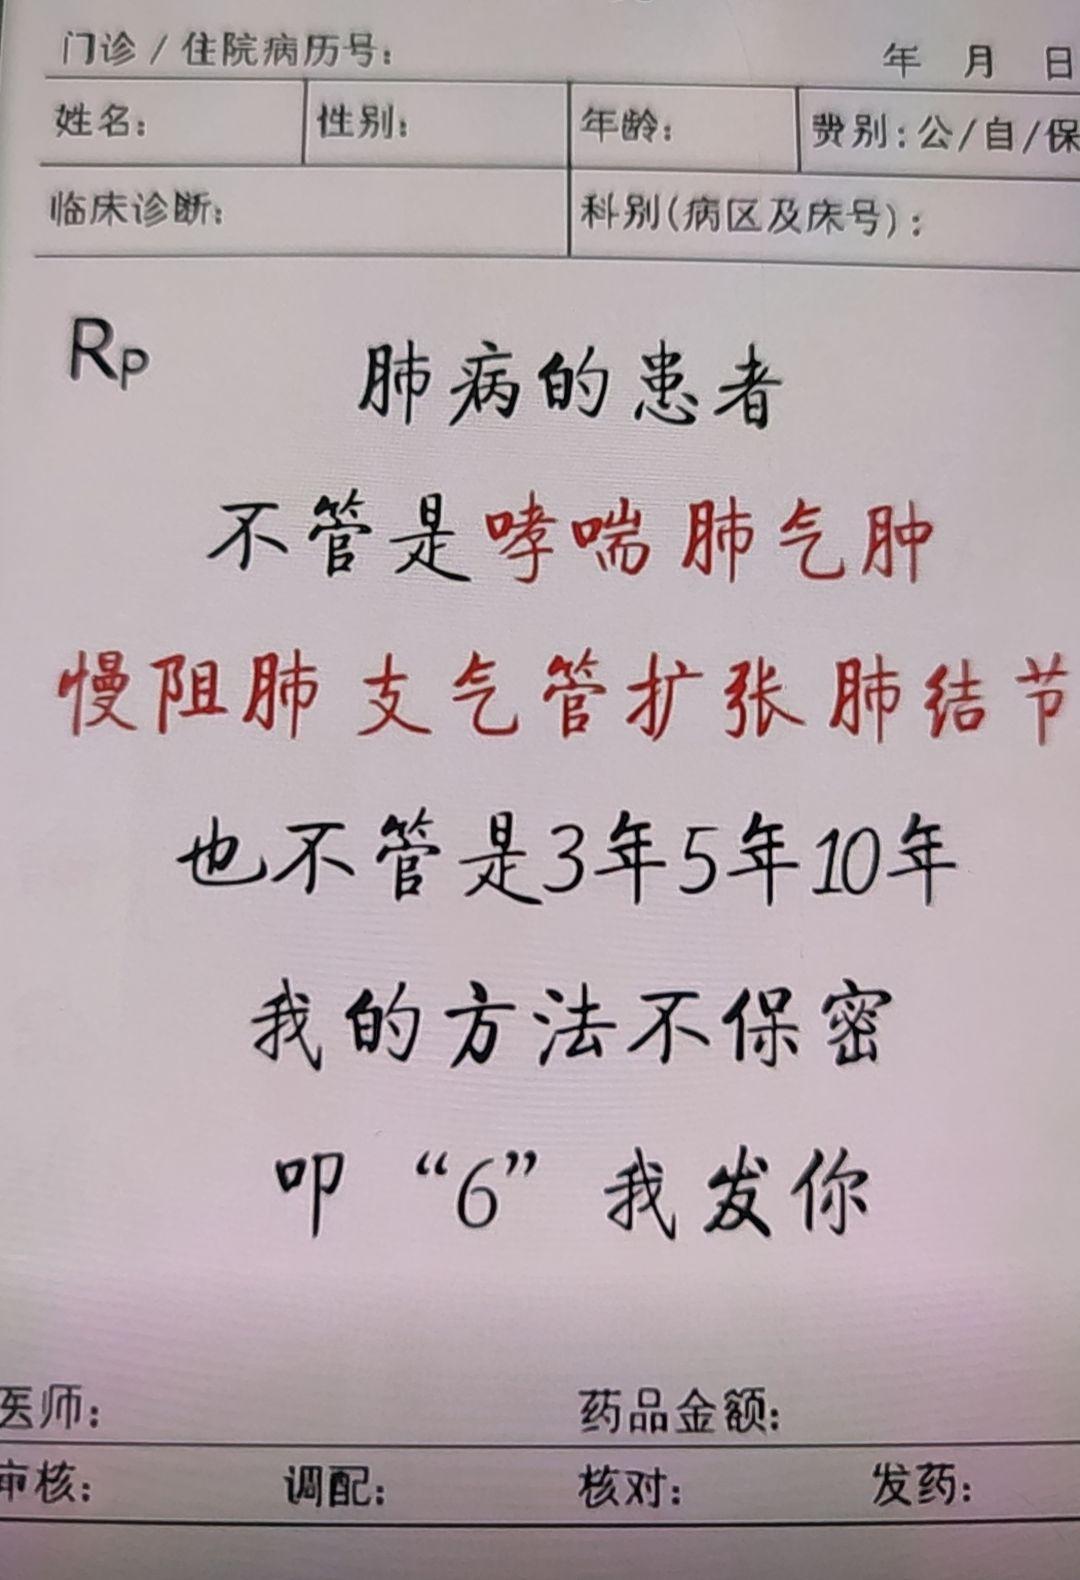 门诊/住院病历号: 年 月 日
姓名: 性别: 年龄: 费别:公/自/保
临床诊断: 科别(病区及床号):
Rp
肺病的患者
不管是哮喘 肺气肿
慢阻肺 支气管扩张 肺结节
也不管是3年5年10年
我的方法不保密
叩 “6” 我发你
医师: 药品金额:
审核: 调配: 核对: 发药: